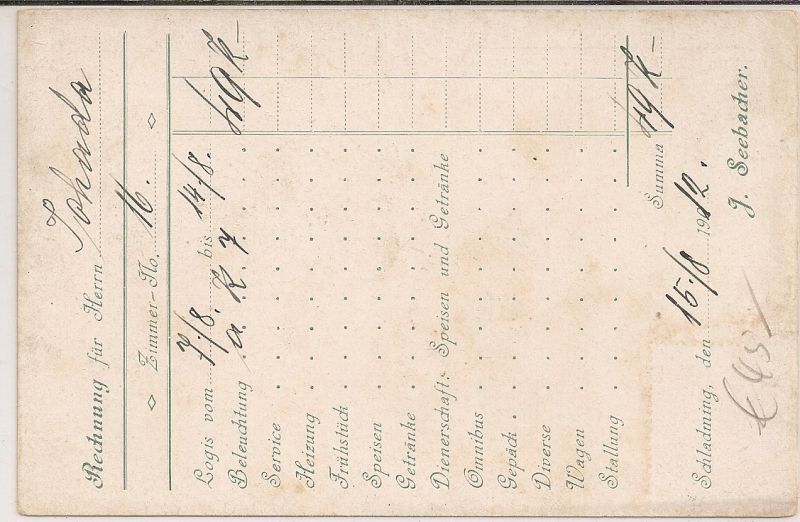 Rechnung für Herrn
Zimmer-No. 16.
Logis vom 7/8. bis 14/8.
Beleuchtung a K 7 49 K –
Service
Heizung
Frühstück
Speisen
Getränke
Dienerschaft, Speisen und Getränke
Omnibus
Gepäck
Diverse
Wagen
Stallung
Summa 49 K –
Schladming, den 15./8 1912.
J. Seebacher.